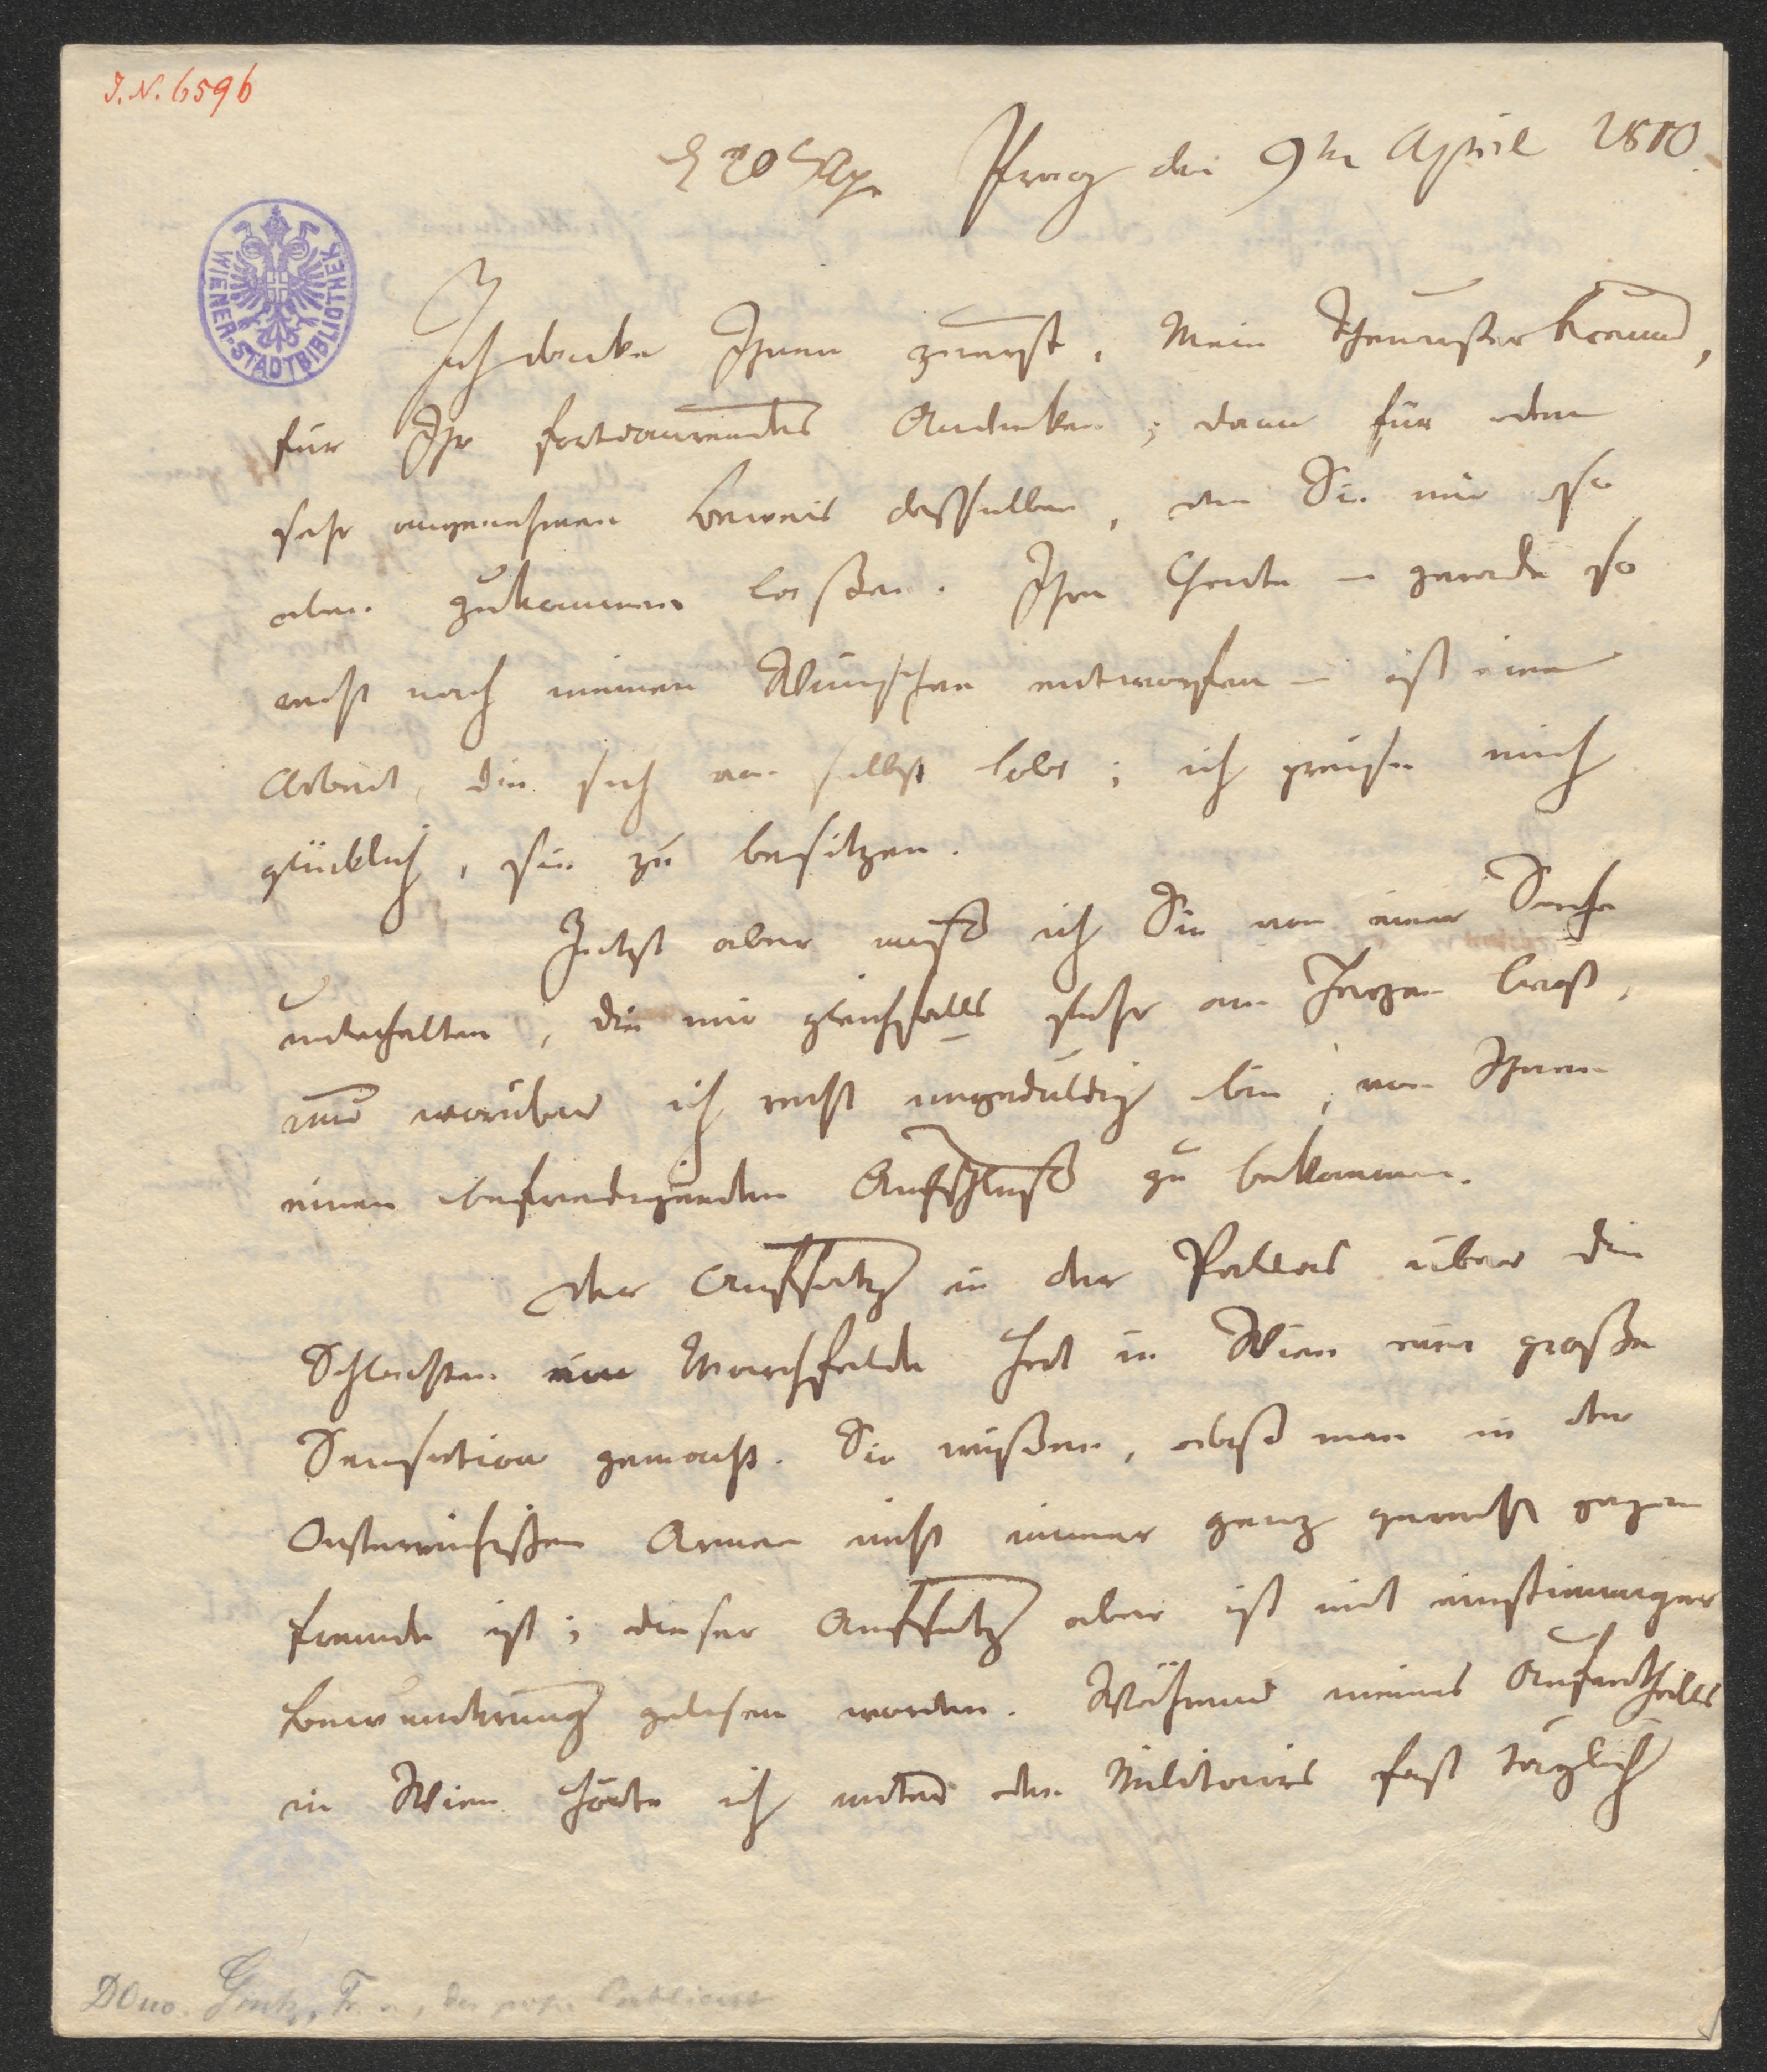 J. N. 6596
Prag den 9ten April 1810.
WIENER-STADTBIBLIOTHEK
Ich danke Ihnen zuerst, Mein Theuerster Freund,
für Ihr fortdaurendes Andenken; dann für den
sehr angenehmen Beweis desselben, den Sie mir so
eben zukommen laßen. Ihre Charte – gerade so
recht nach meinen Wünschen entworfen – ist eine
Arbeit, die sich von selbst lobt; ich preise mich
glücklich, sie zu besitzen.
Jetzt aber muß ich Sie von einer Sache
unterhalten, die mir gleichfalls sehr am Herzen liegt,
und worüber ich recht ungeduldig bin, von Ihnen
einen befriedigenden Aufschluß zu bekommen.
Der Aufsatz in der Pallas über die
Schlachten im Marchfelde hat in Wien eine große
Sensation gemacht. Sie wißen, daß man in der
Oesterreichischen Armee nicht immer ganz gerecht gegen
Fremde ist; dieser Aufsatz aber ist mit einstimmiger
Bewunderung gelesen worden. Während meines Aufenthalts
in Wien hörte ich unter den Militairs fast täglich
Gentz, Fr. v., der Publicist